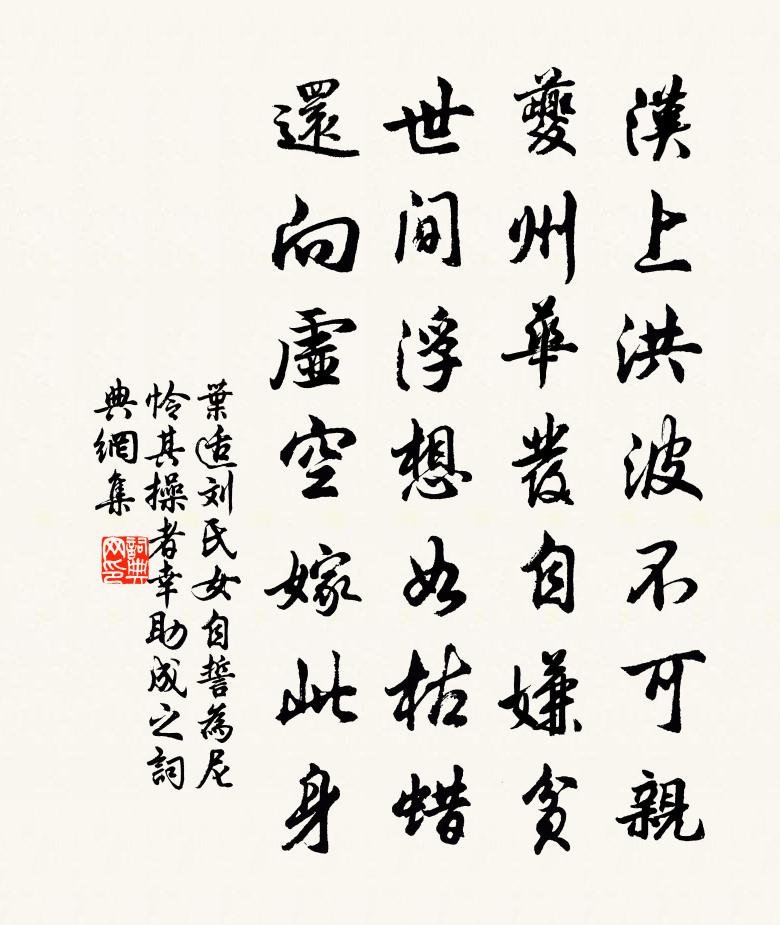 漢上洪波不可親
夔州華發自嫌貧
世間浮想如枯蜡
還向虛空嫁此身
葉適刘氏女自誓為尼
怜其操者幸助成之詞
典網集
詞典
网印